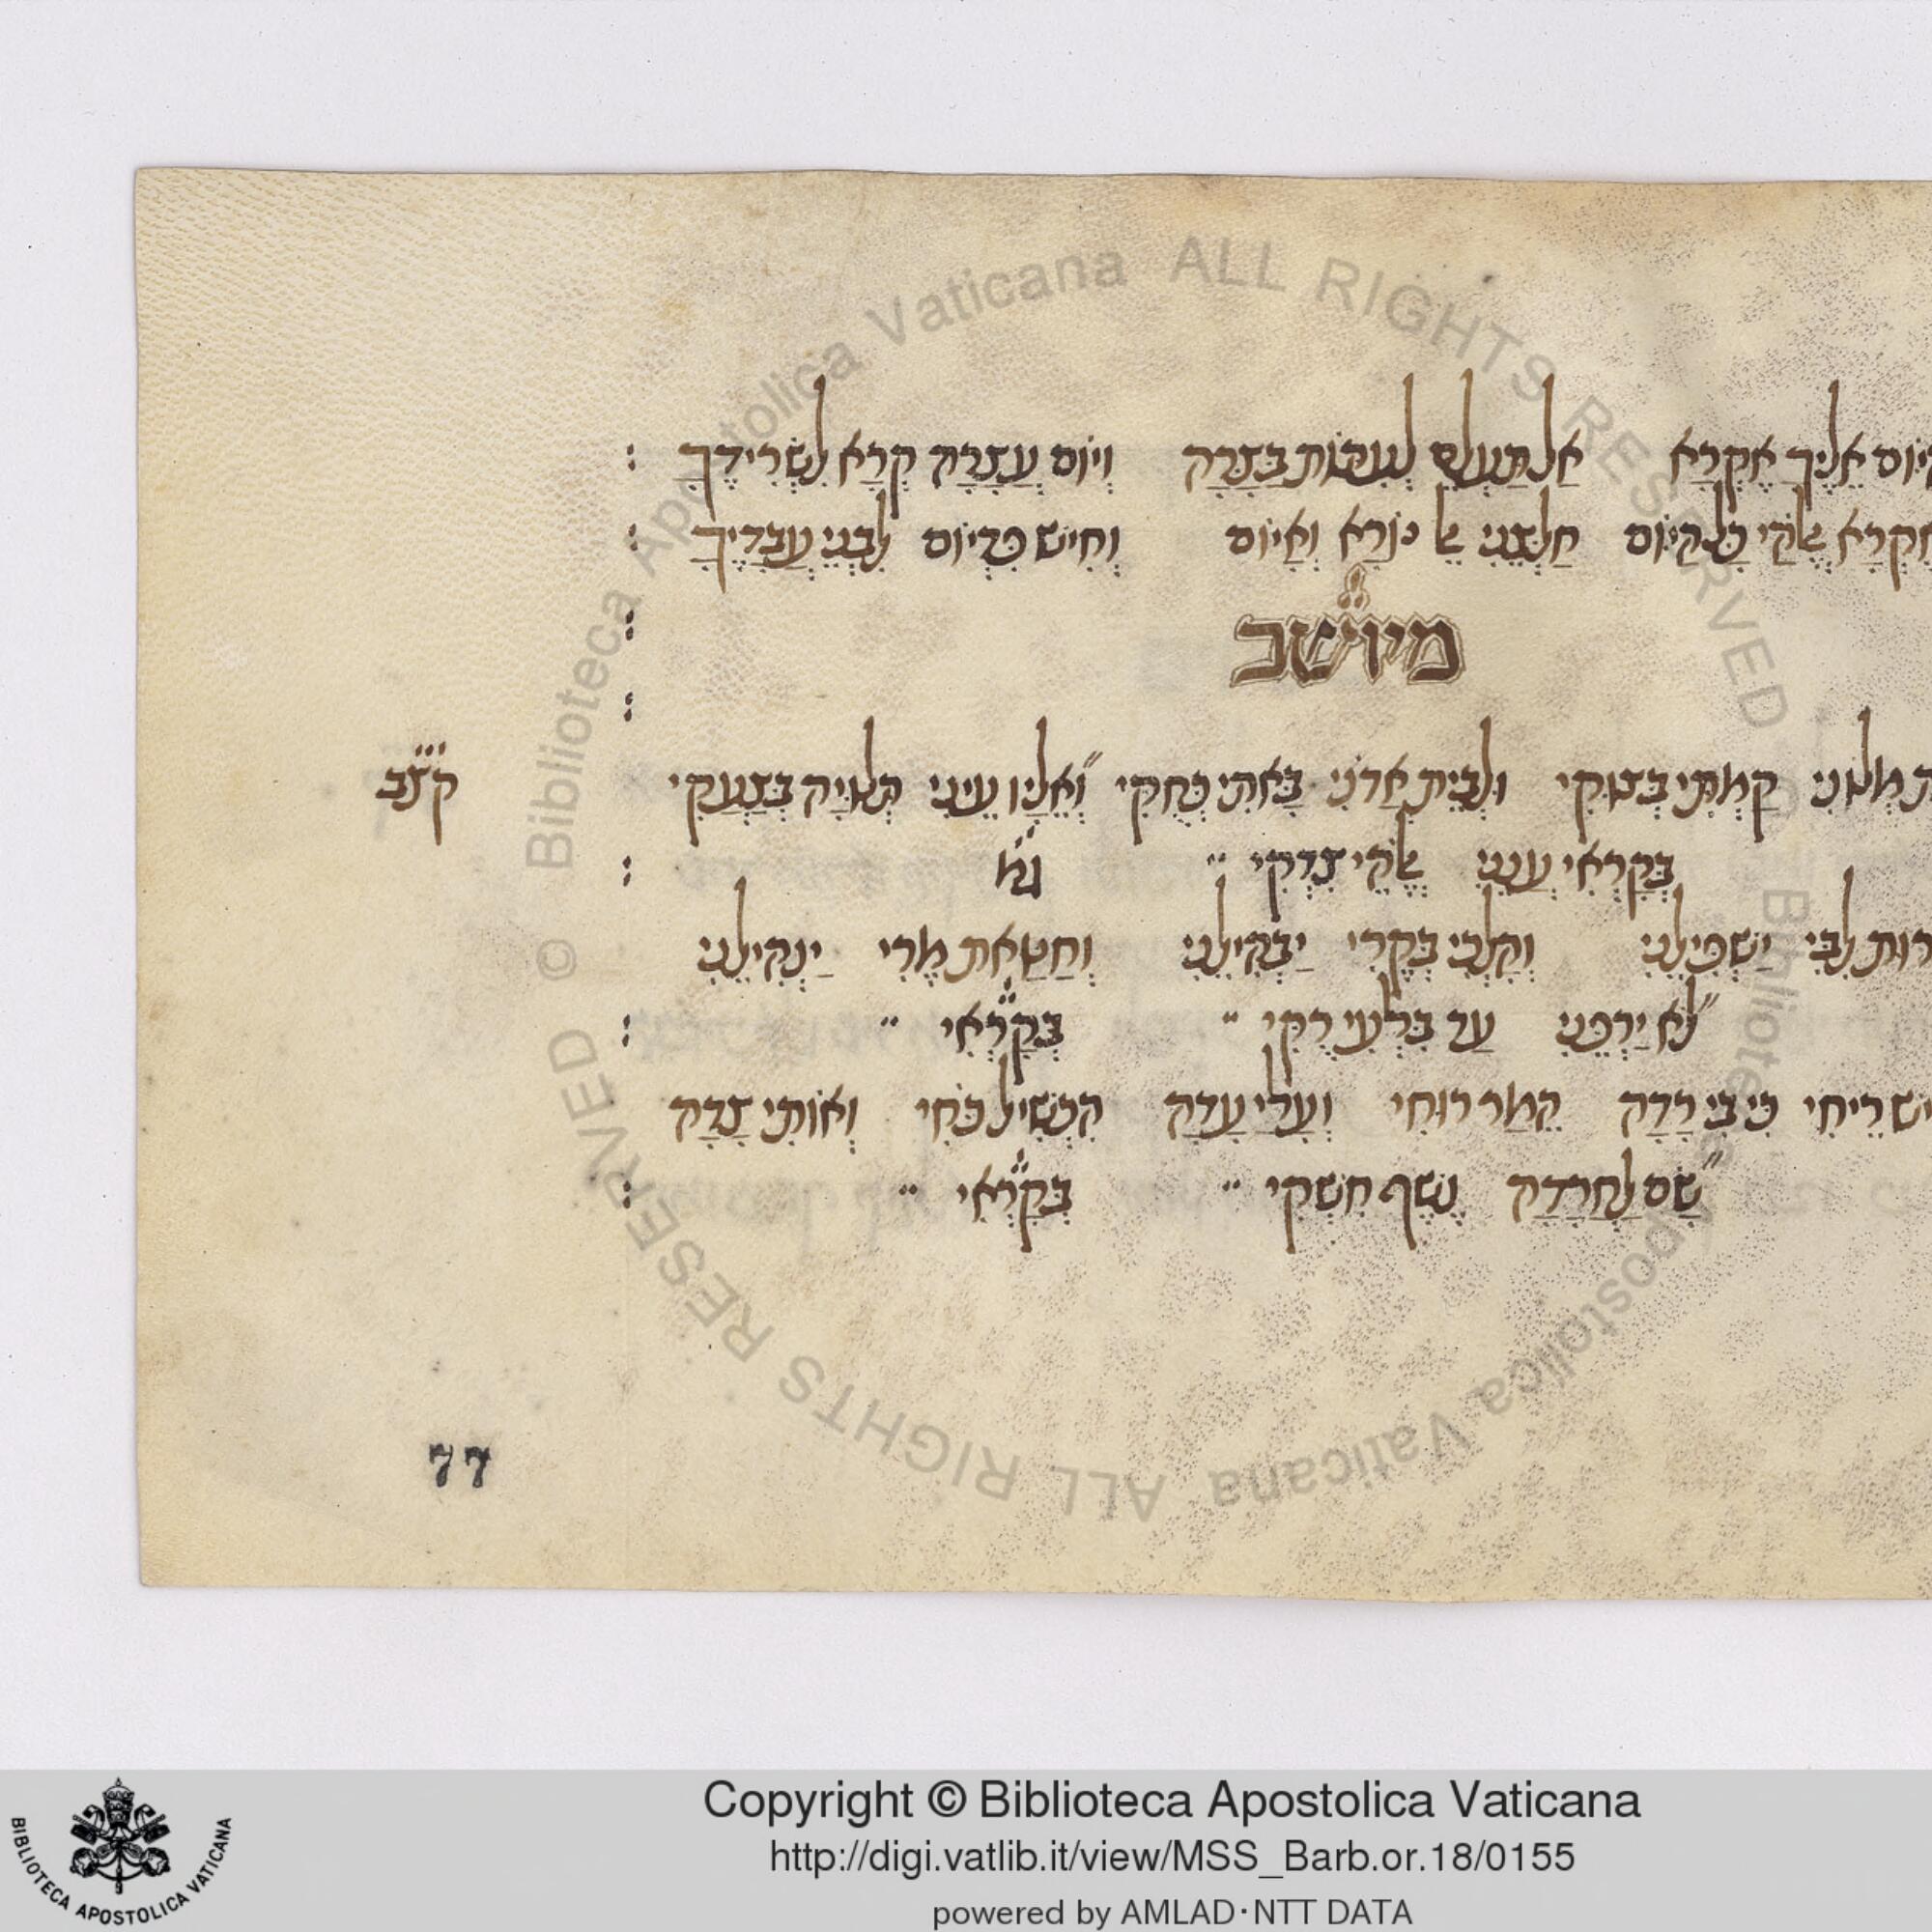 יוֹם אֵלֶיךָ אֶקְרָא אַל תַּעְלֵם לְעִתּוֹת בַּצָּרָה וְיוֹם עֲצָרָה קְרָא לִשְׂרִידֶךָ :
כל היום חַלְּצֵנִי נוֹרָא וְאָיוֹם וְחִישׁ פְּדְיוֹם לִבְנֵי עֲבָדֶיךָ :
מיושב
קַמְתִּי ולְבֵית אֲדֹנָי בָּאתִי וְאֵלָיו עֵינִי תְּלוּיָה בְּצַעֲקִי
קצב
בְּקָרְאִי עֲנֵנִי אֱלֹהֵי צִדְקִי
לִבִּי יַשְׁפִּילֵנִי וְקָלְבִי בְּקִרְבִּי וְחַטַּאת מֶרִי יַנְחִילֵנִי
לֹא יַרְפֵּנִי עַד בִּלְעִי רֻקִּי בְּקָרְאִי :
רֵיחִי כִּי בִי רָדָה הֵמַר רוּחִי וְעָלַי עָדָה הִכְשִׁיל כֹּחִי וְאוֹתִי צָדָה
שָׂם לַחֲרָדָה נֶשֶׁף חִשְׁקִי בְּקָרְאִי :
77
© Biblioteca Apostolica Vaticana ALL RIGHTS RESERVED
© Biblioteca Apostolica Vaticana ALL RIGHTS RESERVED
BIBLIOTECA APOSTOLICA VATICANA
Copyright © Biblioteca Apostolica Vaticana
http://digi.vatlib.it/view/MSS_Barb.or.18/0155
powered by AMLAD·NTT DATA